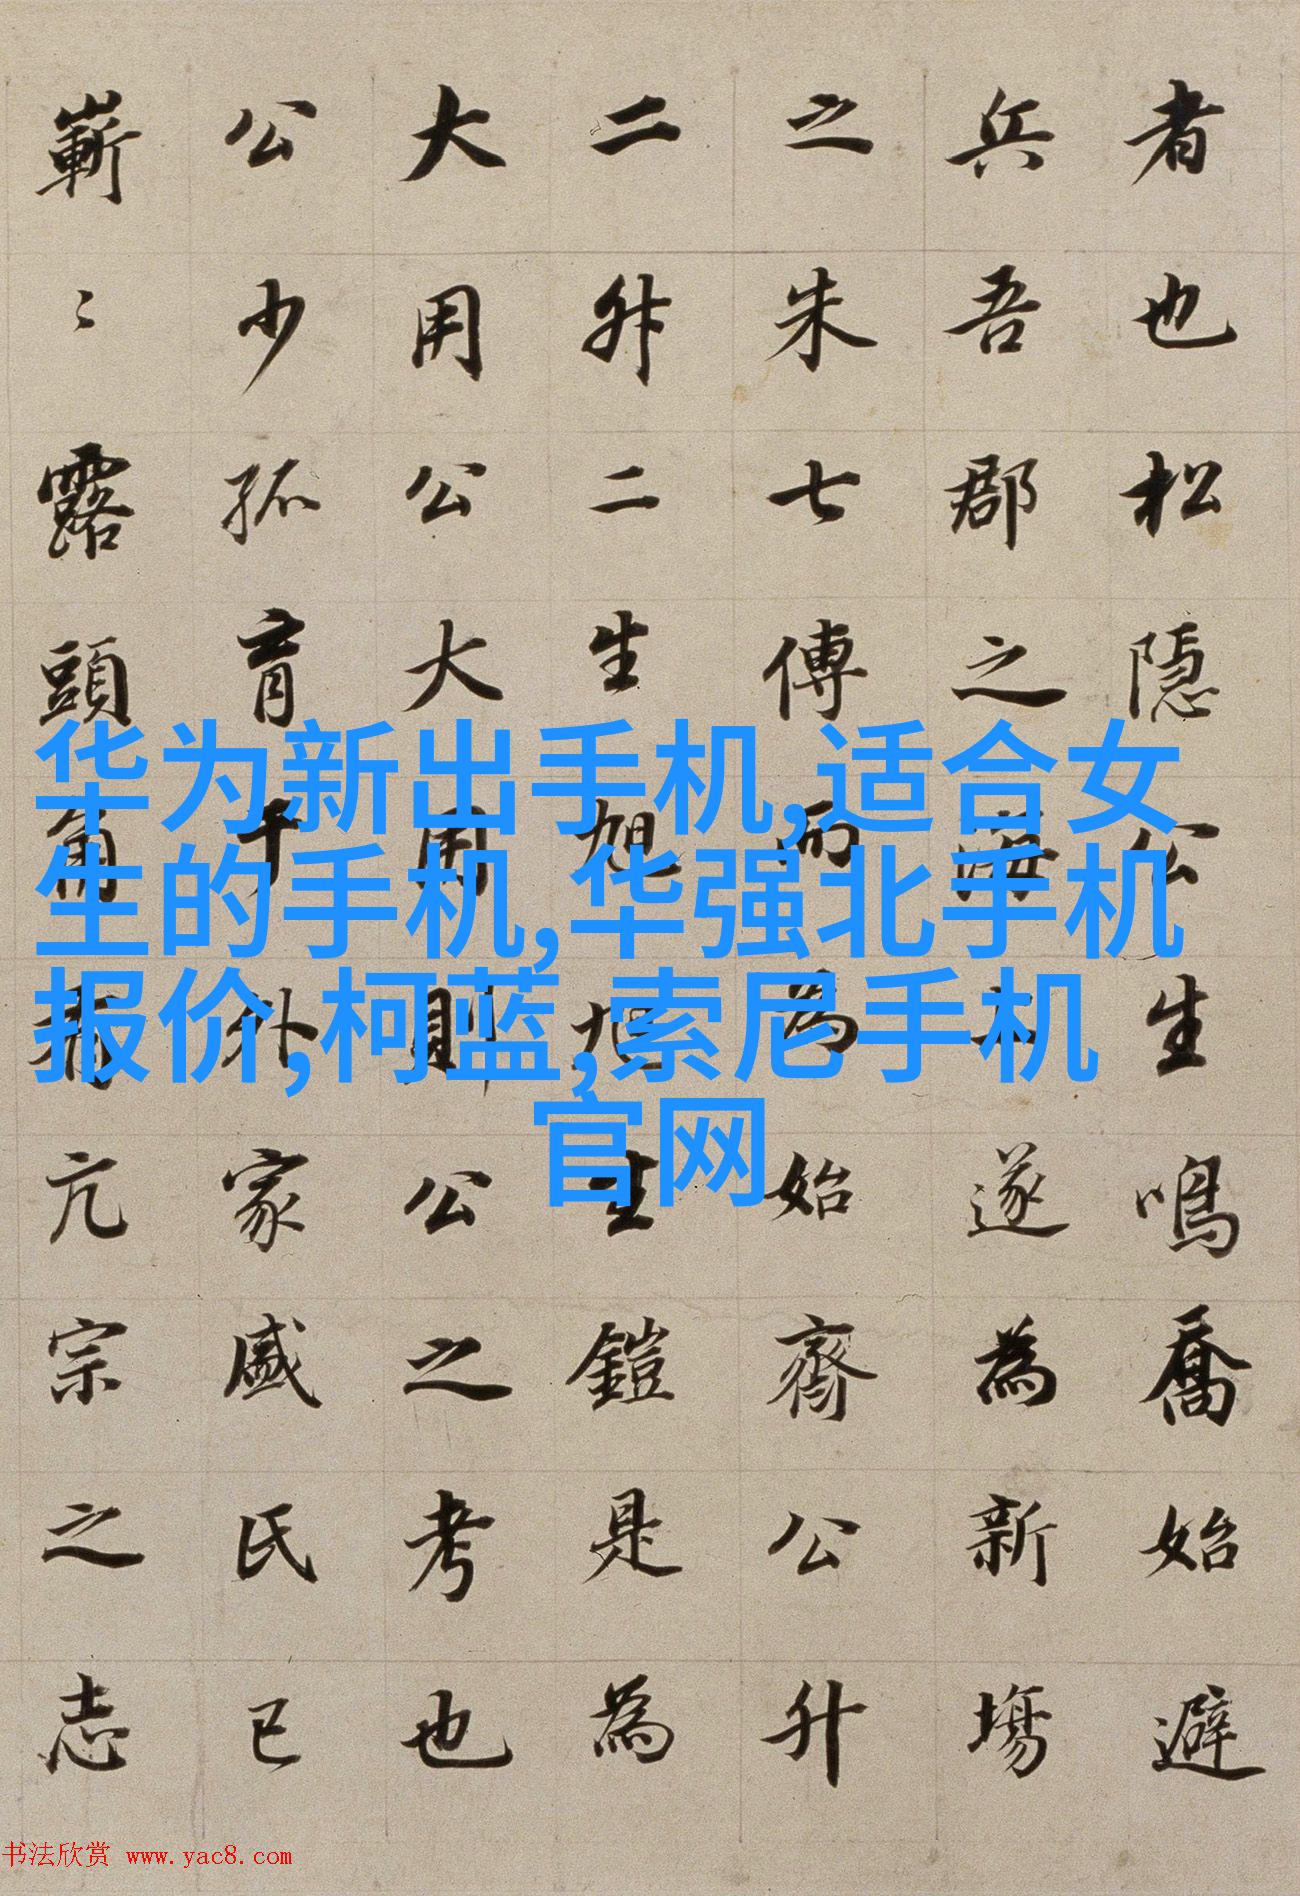 者也松隱公生鳴喬始避
兵吾郡之海上遂為新場
之朱七傳而為始齊公升
二升二生旭旭生鎧是為
大用公大用則公之考也
公少孤育于外家戚氏已
嶄〻露頭角亢宗之志
华为新出手机,适合女
生的手机,华强北手机
报价,柯蓝,索尼手机
官网
书法欣赏 www.yac8.com